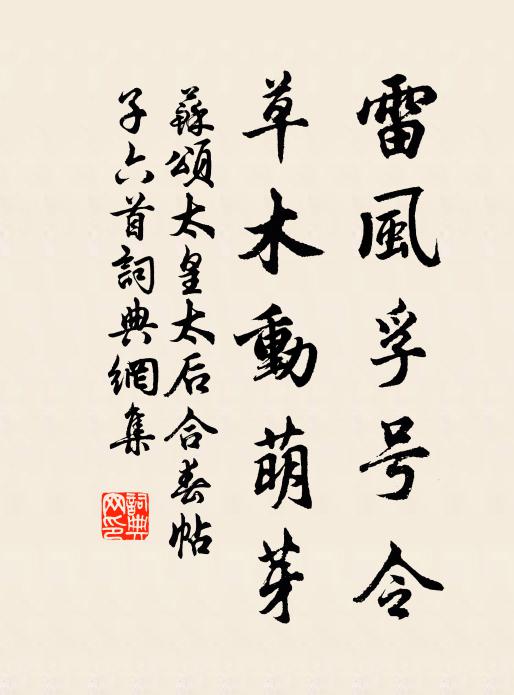 雷風孚号令
草木動萌芽
蘇頌太皇太后合春帖
子六首詞典網集
詞典
网印